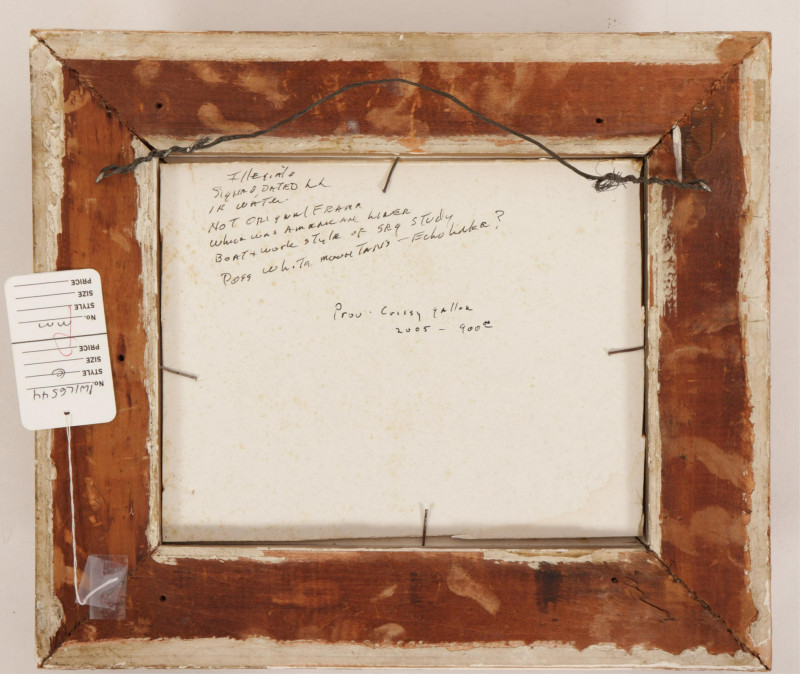 Illegible
Signed, DATED LL
IN WATER
NOT ORIGINAL FRAME
which was AMERICAN LINER
BOAT & work style OF SRG STUDY
Poss White MOUNTAINS - Echo Lake?
Prov. Cory gallery
2005 - 900
PRICE
SIZE
STYLE
No. mm
PRICE
SIZE
STYLE e
No. 1W/L6544